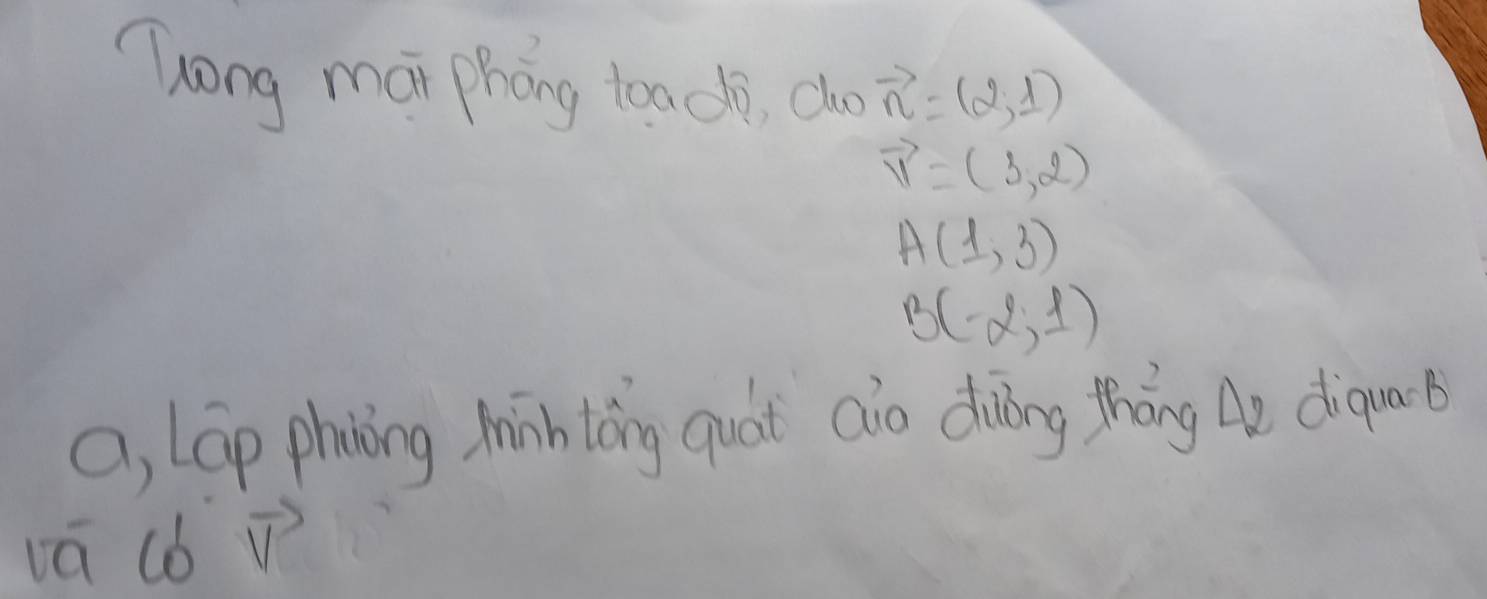 Trong mặt phẳng tọa độ, cho n⃗ = (2;1)
v⃗ = (3;2)
A(1;3)
B(-2;1)
a, Lập phương trình tổng quát của đường thẳng Δ2 đi qua B
và có v⃗